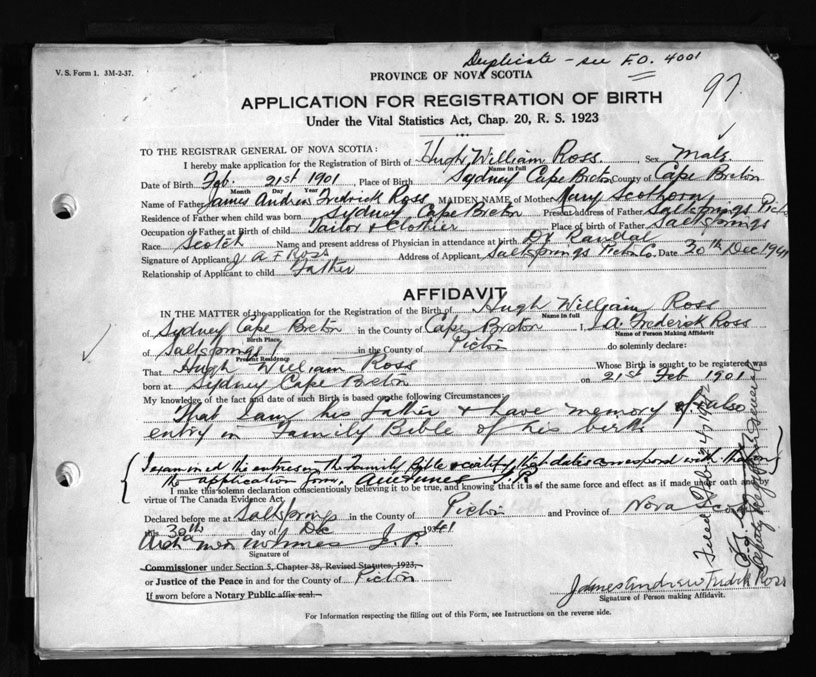 Duplicate - see F.O. 4001
V. S. Form 1. 3M-2-37.
PROVINCE OF NOVA SCOTIA
97.
APPLICATION FOR REGISTRATION OF BIRTH
Under the Vital Statistics Act, Chap. 20, R. S. 1923
TO THE REGISTRAR GENERAL OF NOVA SCOTIA:
I hereby make application for the Registration of Birth of Hugh William Ross Sex Male
Name in full
Date of Birth Feb. 21st 1901 Place of Birth Sydney Cape Breton County of Cape Breton
Month Day Year
Name of Father James Andrew Fredrick Ross MAIDEN NAME of Mother Mary Scothorn
Residence of Father when child was born Sydney Cape Breton Present address of Father Saltsprings Picto
Occupation of Father at Birth of child Tailor & Clothier Place of birth of Father Saltsprings
Race Scotch Name and present address of Physician in attendance at birth Dr Randal
Signature of Applicant J A F Ross Address of Applicant Saltsprings Pictou Co. Date 30th Dec 1941
Relationship of Applicant to child Father
AFFIDAVIT
IN THE MATTER of the application for the Registration of the Birth of Hugh William Ross
Name in full
of Sydney Cape Breton in the County of Cape Breton I, J A Frederick Ross
Birth Place Name of Person Making Affidavit
of Saltsprings in the County of Pictou do solemnly declare:
Present Residence
That Hugh William Ross Whose Birth is sought to be registered was
born at Sydney Cape Breton on 21st Feb 1901
My knowledge of the fact and date of such Birth is based on the following Circumstances:
That I am his father & have memory of & also
entry in Family Bible of his birth
I examined the entries in the Family Bible & certify that dates correspond with
the application form. J.P.
I make this solemn declaration conscientiously believing it to be true, and knowing that it is of the same force and effect as if made under oath and
virtue of The Canada Evidence Act.
Declared before me at Saltsprings in the County of Pictou and Province of Nova Scotia
this 30th day of Dec 1941
J. P.
Signature of
Commissioner under Section 5, Chapter 38, Revised Statutes, 1923,
or Justice of the Peace in and for the County of Pictou
If sworn before a Notary Public affix seal.
James Andrew Fredrick Ross
Signature of Person making Affidavit.
For Information respecting the filling out of this Form, see Instructions on the reverse side.
Filed Feb
Deputy Registrar General